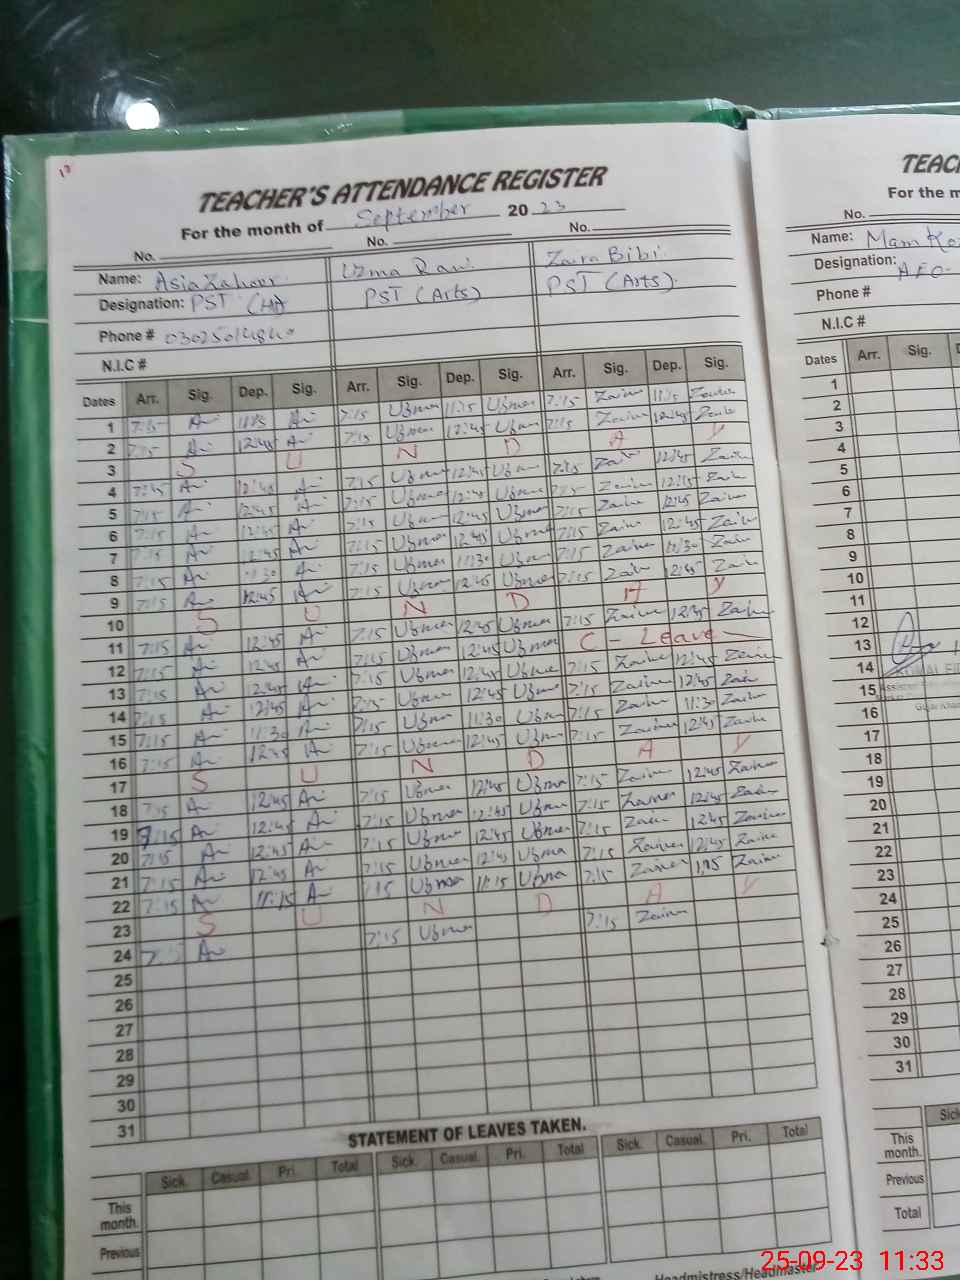 TEACHER'S ATTENDANCE REGISTER
For the month of September 2023
No. No. No.
Name: Asia Zahoor Uzma Rani Zaira Bibi
Designation: PST PST (Arts) PST (Arts)
Phone #
N.I.C #
Dates Arr. Sig. Dep. Sig. Arr. Sig. Dep. Sig. Arr. Sig. Dep. Sig.
1 7:15 11:15 7:15 Uzma 11:15 Uzma 7:15 Zaira 11:15 Zaira
2 7:15 12:45 7:15 Uzma 12:45 Uzma 7:15 Zaira 12:45 Zaira
3 S U N D A Y
4 12:45 7:15 Uzma 12:45 Uzma 7:15 Zaira 12:45 Zaira
5 7:15 12:45 7:15 Uzma 12:45 Uzma 7:15 Zaira 12:45 Zaira
6 7:15 12:45 7:15 Uzma 12:45 Uzma 7:15 Zaira 12:45 Zaira
7 7:15 12:45 7:15 Uzma 12:45 Uzma 7:15 Zaira 12:45 Zaira
8 7:15 11:30 7:15 Uzma 11:30 Uzma 7:15 Zaira 11:30 Zaira
9 7:15 12:45 7:15 Uzma 12:45 Uzma 7:15 Zaira 12:45 Zaira
10 S U N D A Y
11 7:15 12:45 7:15 Uzma 12:45 Uzma 7:15 Zaira 12:45 Zaira
12 7:15 12:45 7:15 Uzma 12:45 Uzma C - Leave
13 7:15 12:45 7:15 Uzma 12:45 Uzma 7:15 Zaira 12:45 Zaira
14 7:15 12:45 7:15 Uzma 12:45 Uzma 7:15 Zaira 12:45 Zaira
15 7:15 11:30 7:15 Uzma 11:30 Uzma 7:15 Zaira 11:30 Zaira
16 7:15 12:45 7:15 Uzma 12:45 Uzma 7:15 Zaira 12:45 Zaira
17 S U N D A Y
18 7:15 12:45 7:15 Uzma 12:45 Uzma 7:15 Zaira 12:45 Zaira
19 7:15 12:45 7:15 Uzma 12:45 Uzma 7:15 Zaira 12:45 Zaira
20 7:15 12:45 7:15 Uzma 12:45 Uzma 7:15 Zaira 12:45 Zaira
21 7:15 12:45 7:15 Uzma 12:45 Uzma 7:15 Zaira 12:45 Zaira
22 7:15 11:15 7:15 Uzma 11:15 Uzma 7:15 Zaira 11:15 Zaira
23 S U N D A Y
24 7:15 Uzma 7:15 Zaira
25
26
27
28
29
30
31
STATEMENT OF LEAVES TAKEN.
Sick. Casual. Pri. Total Sick. Casual. Pri. Total Sick. Casual. Pri. Total
This month.
Previous
Headmistress/Headmaster
TEAC
For the m
No.
Name: Mam
Designation: AEO
Phone #
N.I.C #
Dates Arr. Sig.
1
2
3
4
5
6
7
8
9
10
11
12
13
14
15
16
17
18
19
20
21
22
23
24
25
26
27
28
29
30
31
Sick
This month.
Previous
Total
25-09-23 11:33